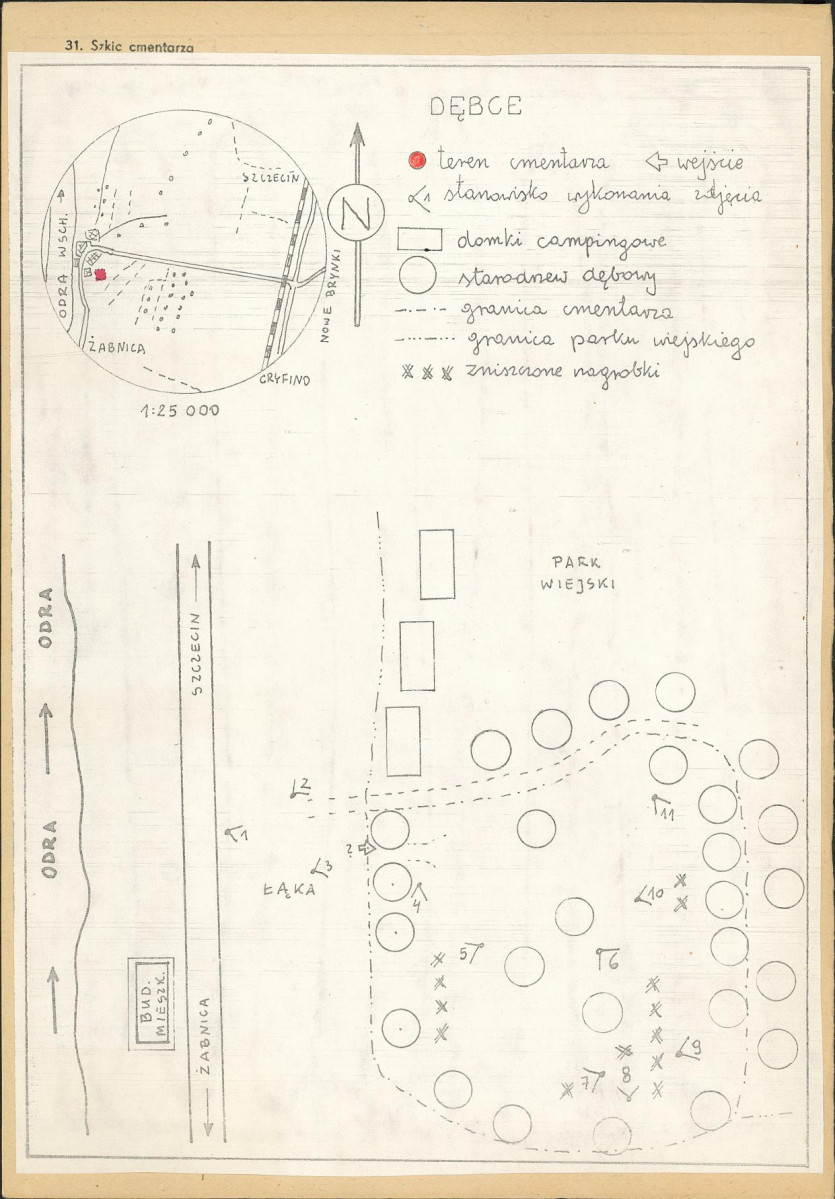 31. Szkic cmentarza
DĘBCE
teren cmentarza
wejście
1 stanowisko wykonania zdjęcia
domki campingowe
starodrzew dębowy
granica cmentarza
granica parku wiejskiego
zniszczone nagrobki
N
SZCZECIN
ODRA WSCH.
NOWE BRYNKI
ŻABNICA
GRYFINO
1:25 000
PARK
WIEJSKI
ODRA
SZCZECIN
2
11
1
ODRA
?
3
ŁĄKA
4
10
5
6
BUD.
MIESZK.
ŻABNICA
9
7
8